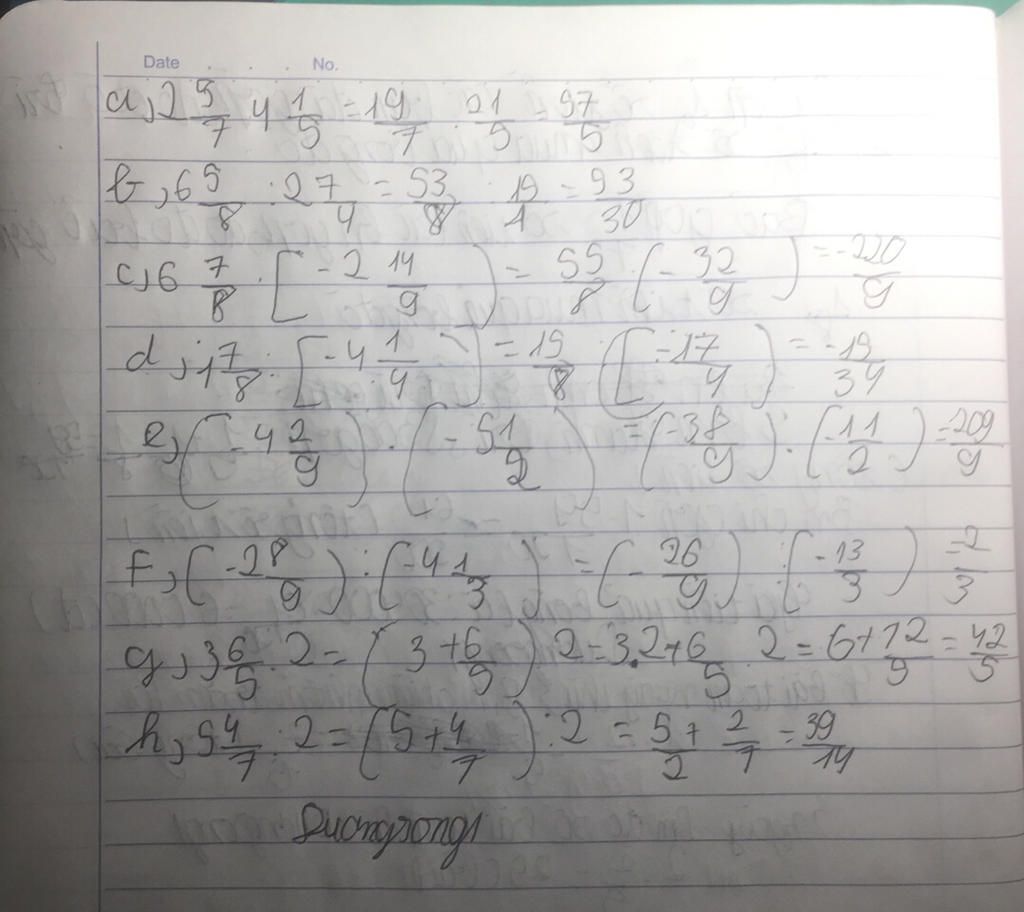 Date No.
a, 2 5/7 . 4 1/5 = 19/7 . 21/5 = 57/5
b, 6 5/8 : 2 7/4 = 53/8 . 19/1 = 53/30
c, 6 7/8 . [ -2 14/9 ) = 55/8 . ( - 32/9 ) = -220/9
d, 1 7/8 : [ -4 1/4 ) = 15/8 ( [ -17/4 ) = -15/34
e, ( -4 2/9 ) . ( -5 1/2 ) = ( -38/9 ) : ( -11/2 ) = 209/9
f, ( -2 8/9 ) : ( -4 1/3 ) = ( - 26/9 ) : ( -13/3 ) = 2/3
g, 3 6/5 . 2 = ( 3 + 6/5 ) . 2 = 3.2 + 6/5 . 2 = 6 + 12/5 = 42/5
h, 5 4/7 : 2 = ( 5 + 4/7 ) : 2 = 5/2 + 2/7 = 39/14